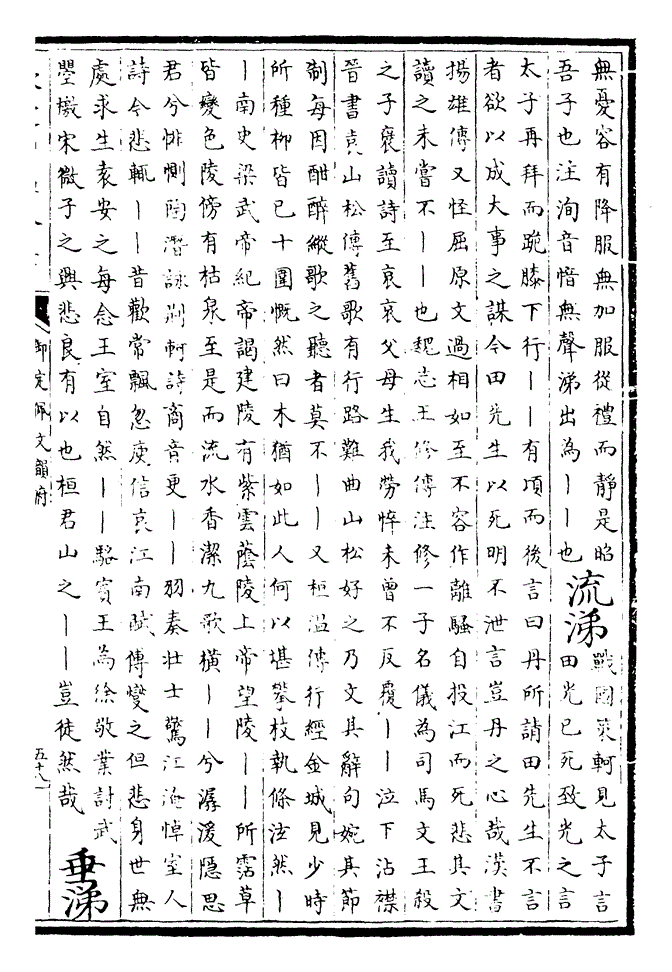 無憂容有降服無加服從禮而靜是昭
吾子也注洵音惛無聲涕出為丨丨也
流涕
戰國策荊軻見太子言
田光已死致光之言
太子再拜而跪膝下行丨丨有頃而後言曰丹所請田先生不言
者欲以成大事之謀今田先生以死明不泄言豈丹之心哉漢書
揚雄傳又怪屈原文過相如至不容作離騷自投江而死悲其文
讀之未嘗不丨丨也魏志王修傳注修一子名儀為司馬文王殺
之子裒讀詩至哀哀父母生我勞悴未曾不反覆丨丨泣下沾襟
晉書袁山松傳舊歌有行路難曲山松好之乃文其辭句婉其節
制每因酣醉縱歌之聽者莫不丨丨又桓溫傳行經金城見少時
所種柳皆已十圍慨然曰木猶如此人何以堪攀枝執條泫然丨
丨南史梁武帝紀帝謁建陵有紫雲蔭陵上帝望陵丨丨所霑草
皆變色陵傍有枯泉至是而流水香潔九歌橫丨丨兮潺湲隱思
君兮悱惻陶潛詠荆軻詩商音更丨丨羽奏壯士驚江淹悼室人
詩今悲輒丨丨昔歡常飄忽庾信哀江南賦傅燮之但悲身世無
處求生袁安之每念王室自然丨丨駱賓王為徐敬業討武
曌檄宋微子之興悲良有以也桓君山之丨丨豈徒然哉
垂涕
御定佩文韻府
五十八